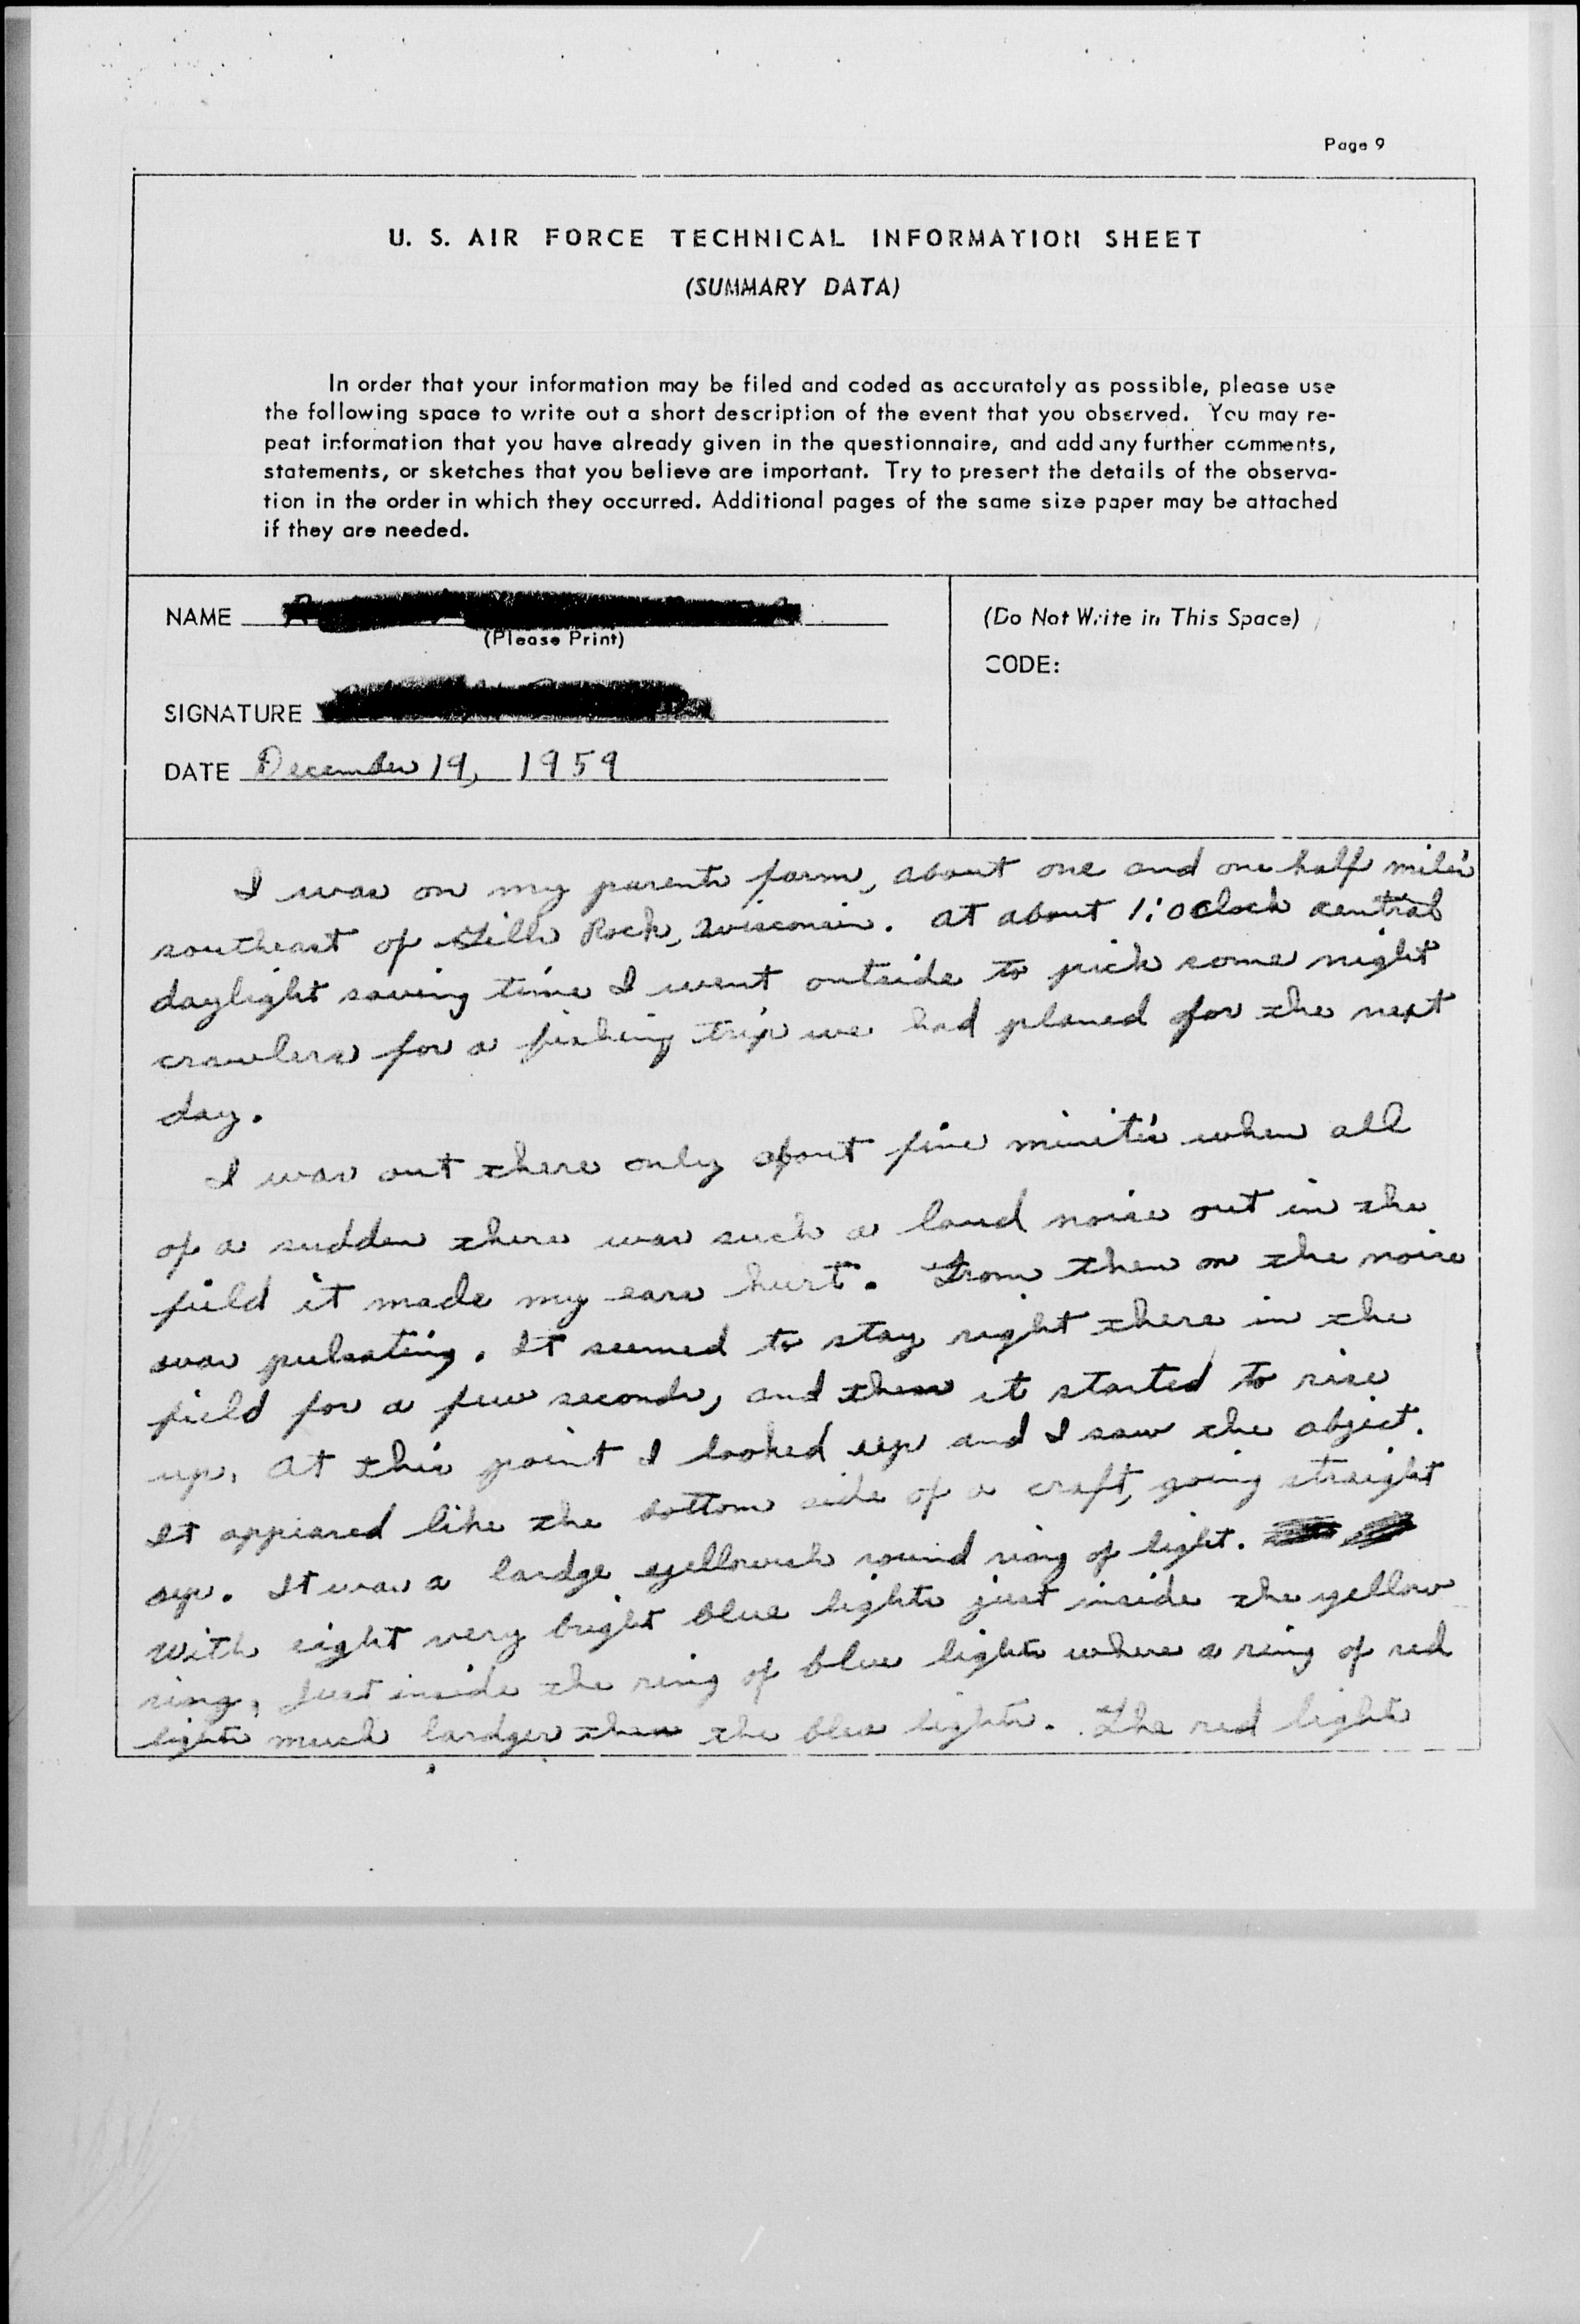 Page 9
U. S. AIR FORCE TECHNICAL INFORMATION SHEET
(SUMMARY DATA)
In order that your information may be filed and coded as accurately as possible, please use
the following space to write out a short description of the event that you observed. You may re-
peat information that you have already given in the questionnaire, and add any further comments,
statements, or sketches that you believe are important. Try to present the details of the observa-
tion in the order in which they occurred. Additional pages of the same size paper may be attached
if they are needed.
NAME
(Please Print)
SIGNATURE
DATE December 19, 1959
(Do Not Write in This Space)
CODE:
I was on my parents farm, about one and one half mile's
southeast of Gills Rock, Wisconsin. At about 1:oclock central
daylight saving time I went outside to pick some night
crawlers for a fishing trip we had planed for the next
day.
I was out there only about five minite's when all
of a sudden there was such a loud noise out in the
field it made my ears hurt. From then on the noise
was pulsating. It seemed to stay right there in the
field for a few seconds, and then it started to rise
up. At this point I looked up and I saw the object.
It appiared like the bottom side of a craft, going straight
up. It was a lardge yellowish round ring of light.
With eight very bright blue lights just inside the yellow
ring, Just inside the ring of blue lights where a ring of red
lights much lardger then the blue lights. The red lights